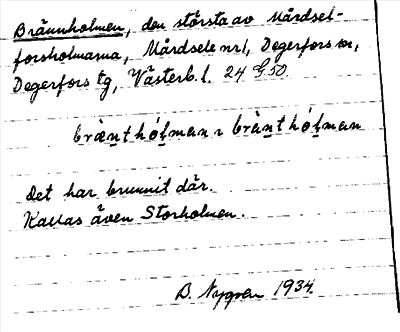 Brännholmen, den största av Mårdsel-
forsholmarna, Mårdsele nr1, Degerfors sn,
Degerfors tg, Västerb. l. 24 G 50.
bränthólman 2 brànthólman
Det har brunnit där.
Kallas även Storholmen.
B. Nygren 1934.